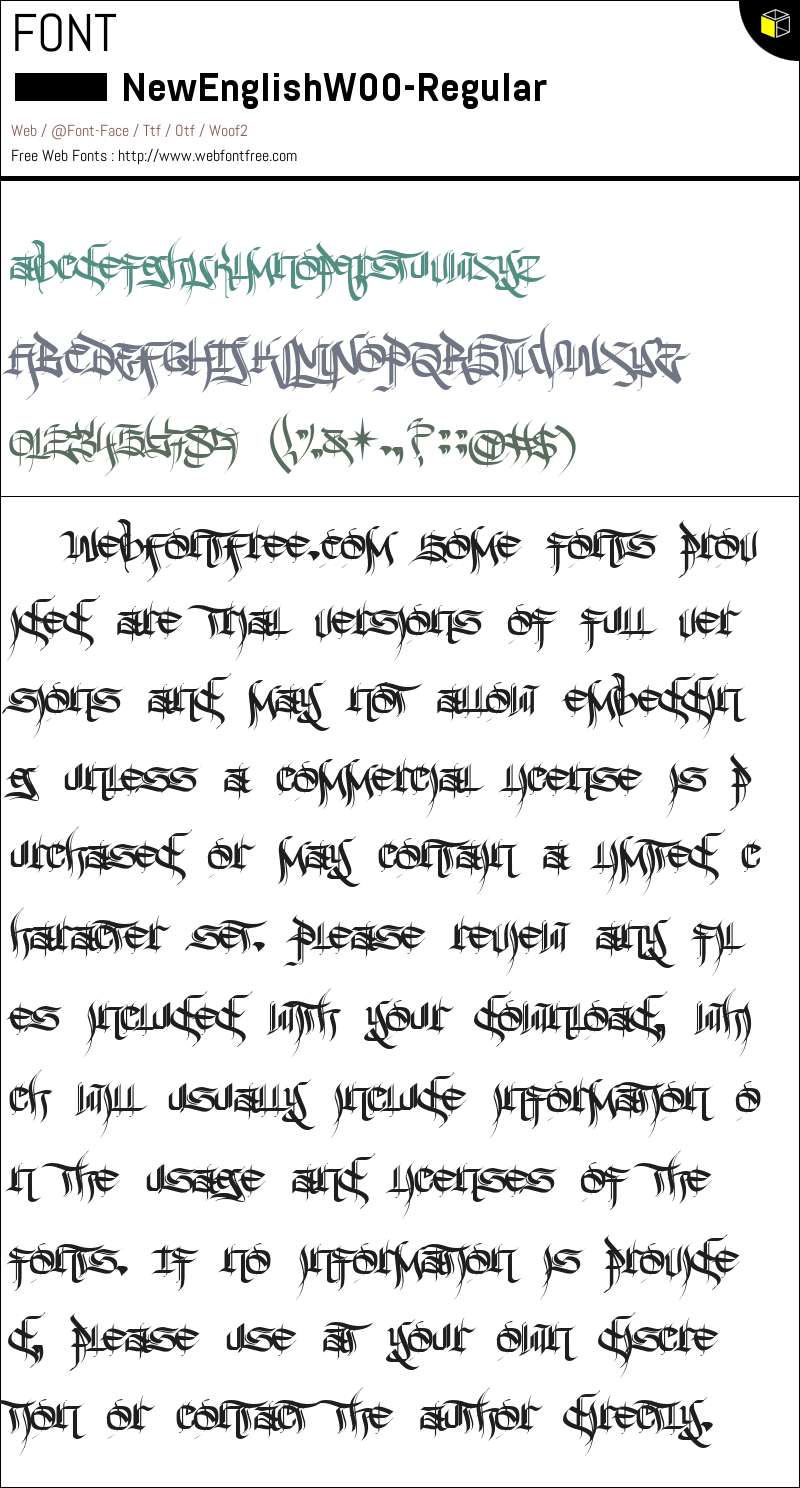 FONT
NewEnglishW00-Regular
Web / @Font-Face / Ttf / Otf / Woof2
Free Web Fonts : http://www.webfontfree.com
abcdefghijklmnopqrstuvwxyz
ABCDEFGHIJKLMNOPQRSTUVWXYZ
0123456789 (!%.&*.,?::@#$)
Webfontfree.com some fonts prov
ided are trial versions of full ver
sions and may not allow embeddin
g unless a commercial license is p
urchased or may contain a limited c
haracter set. Please review any fil
es included with your download, whi
ch will usually include information o
n the usage and licenses of the
fonts. If no information is provide
d, please use at your own discre
tion or contact the author directly.